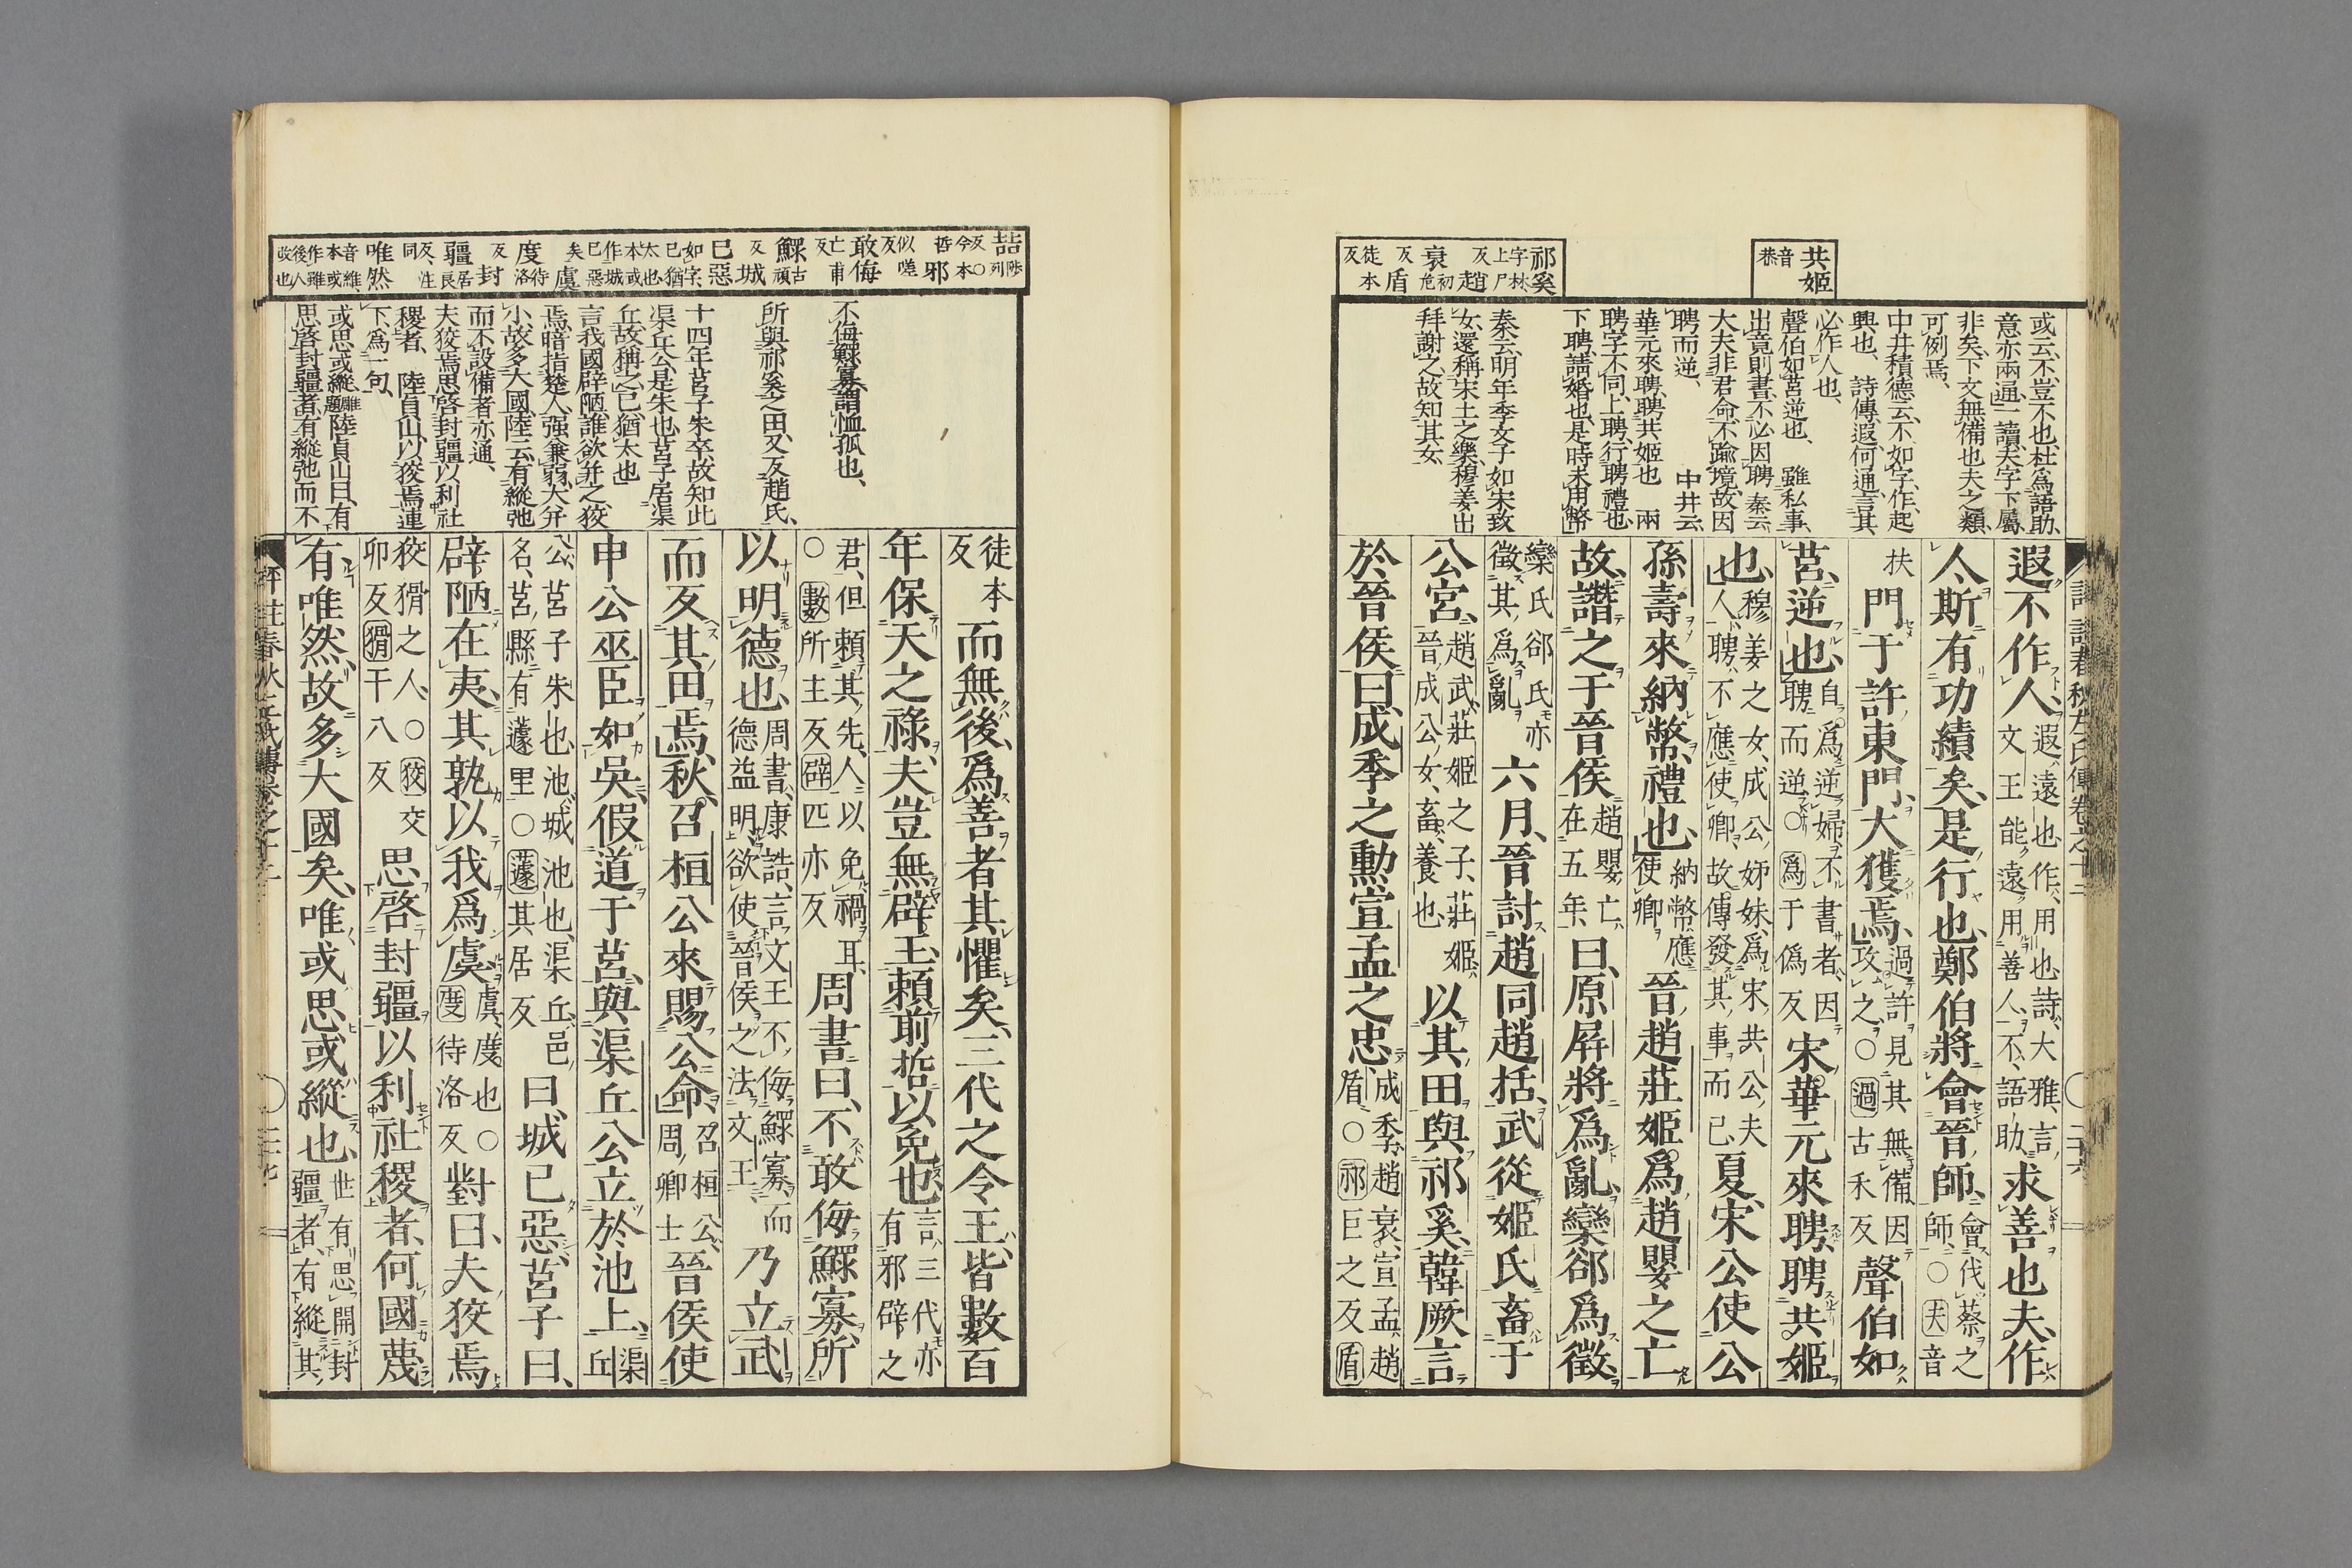 共姬音恭
祁奚字林上尸反趙衰初危反盾徒本反
或云、不、豈不也、杜爲語助、
意亦兩通、一讀、夫字下屬、
非矣、下文無備也夫之類、
可例焉、
中井積德云、不、如字、作、起
興也、詩傳、遐、何通、言其
必作人也、
聲伯如莒逆也、雖私事、
出竟則書、不必因聘、秦云、
大夫非君命、不踰境、故因
聘而逆、中井云、
華元來聘、聘共姬也、兩
聘字不同、上聘、行聘禮也、
下聘、請婚也、是時未用幣、
秦云、明年季文子如宋致
女、還稱宋土之樂、穆姜出
拜謝之、故知其女、
遐不作人、遐、遠也、作、用也、詩、大雅、言、文王能遠用善人、不、語助、求善也夫、作
人、斯有功績矣、是行也、鄭伯將會晉師、會伐蔡之師、○夫音
扶門于許東門、大獲焉、過許見其無備、因攻之、○過古禾反聲伯如
莒、逆也、自爲逆婦、不書者、因聘而逆、○爲于僞反宋華元來聘、聘共姬
也、穆姜之女、成公姊妹、爲宋共公夫人、聘不應使卿、故傳發其事而已、夏、宋公使公
孫壽來納幣、禮也、納幣應使卿、晉趙莊姬爲趙嬰之亡
故、譖之于晉侯、趙嬰亡在五年、曰、原屏將爲亂、欒郤爲徵、
欒氏郤氏亦徵其爲亂、六月、晉討趙同趙括、武從姬氏畜于
公宮、趙武、莊姬之子、莊姬、晉成公女、畜、養也、以其田與祁奚、韓厥言
於晉侯曰、成季之勳、宣孟之忠、成季、趙衰、宣孟、趙盾、○祁巨之反盾
喆陟列反○今本哲邪似嗟反敢侮亡甫反鰥古頑反城已惡如字、已猶太也本或作城已惡矣虞度待洛反封疆居良反、注同唯然音維、本或作雖後人改也
不侮鰥寡、謂恤孤也、
所與祁奚之田、又反趙氏、
十四年莒子朱卒、故知此
渠丘公是朱也、莒子居渠
丘、故稱之、已猶太也、
言我國辟陋、誰欲并之、狡
焉、暗指楚人、强兼弱、大并
小、故多大國、陸云、有縱弛
而不設備者、亦通、
夫狡焉思啓封疆以利社
稷者、陸貞山、以狡焉連
下、爲一句、
或思、或縱、陸貞山曰、有
思啓封疆者、有縱弛而不
徒本反而無後、爲善者其懼矣、三代之令王、皆數百
年保天之祿、夫豈無辟王、賴前喆以免也、言三代亦有邪辟之
君、但賴其先人以免禍耳、○數所主反辟匹亦反周書曰、不敢侮鰥寡、所
以明德也、周書、康誥、言文王不侮鰥寡、而德益明、欲使晉侯之法文王、乃立武
而反其田焉、秋、召桓公來賜公命、召桓公、周卿士晉侯使
申公巫臣如吳、假道于莒、與渠丘公立於池上、渠丘
公、莒子朱也、池、城池也、渠丘、邑名、莒縣有蘧里○蘧其居反曰、城已惡、莒子曰、
辟陋在夷、其孰以我爲虞、虞、度也○度待洛反對曰、夫狡焉
狡猾之人、○狡交卯反猾干八反思啓封疆以利社稷者、何國蔑
有、唯然、故多大國矣、唯或思、或縱也、世有思開封疆者、有縱其